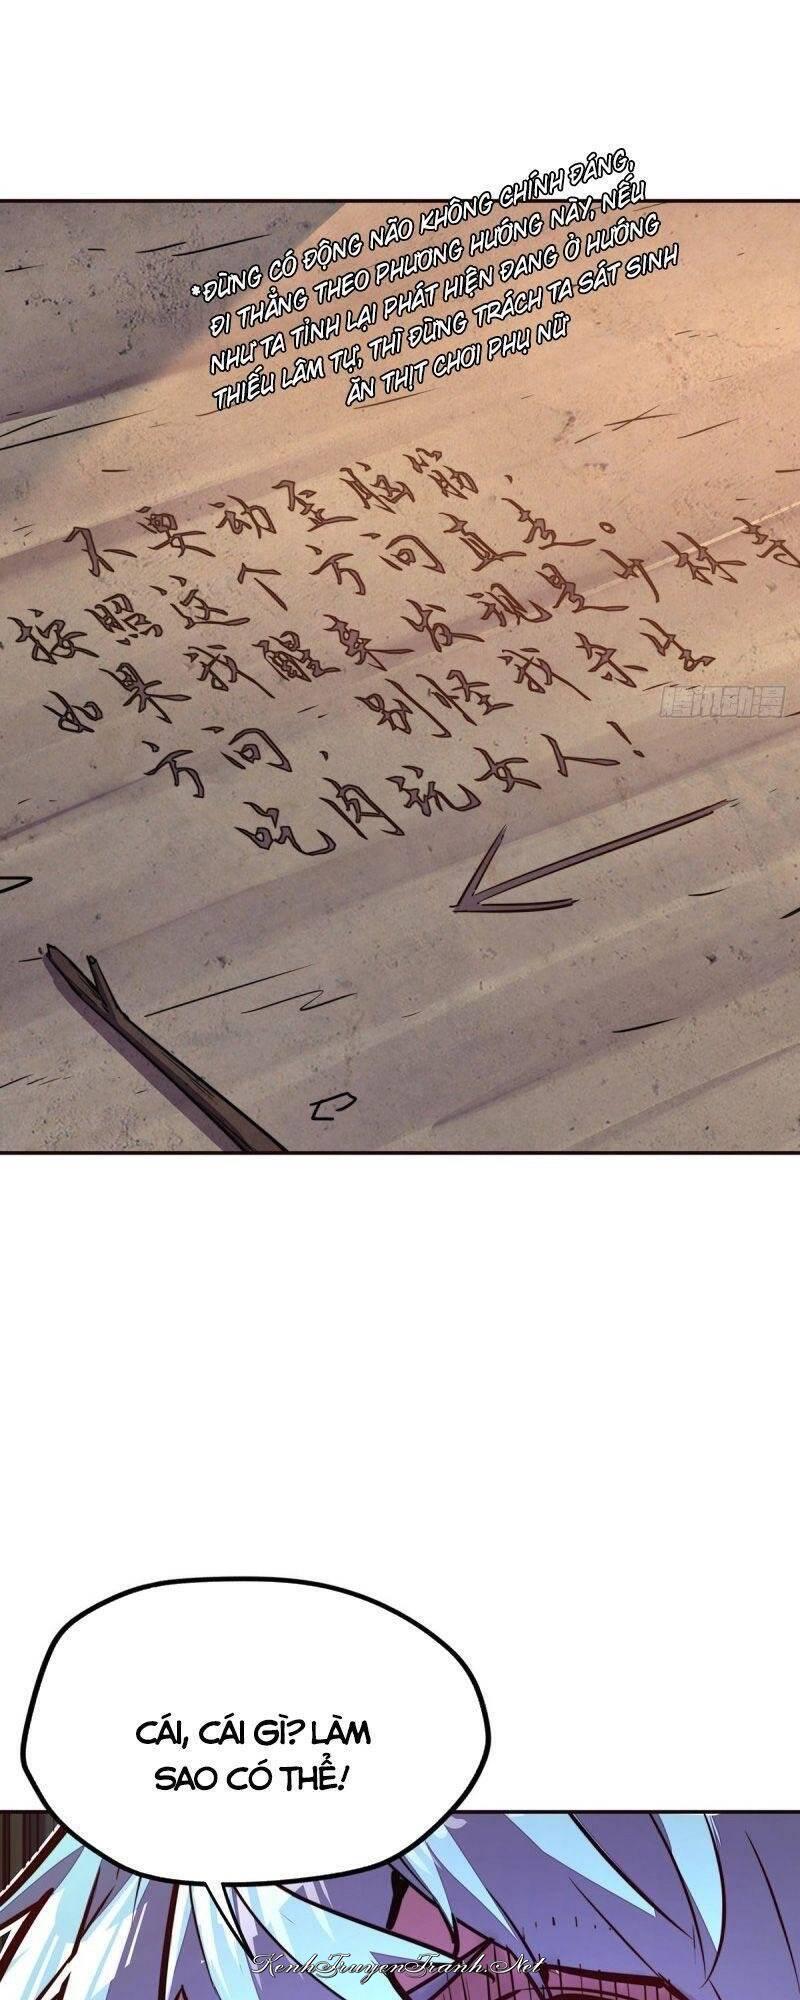 *ĐỪNG CÓ ĐỘNG NÃO KHÔNG CHÍNH ĐÁNG,
ĐI THẲNG THEO PHƯƠNG HƯỚNG NÀY, NẾU
NHƯ TA TỈNH LẠI PHÁT HIỆN ĐANG Ở HƯỚNG
THIẾU LÂM TỰ, THÌ ĐỪNG TRÁCH TA SÁT SINH
ĂN THỊT CHƠI PHỤ NỮ
不要动歪脑筋.
按照这个方向直走。
如果我醒来发现是少林寺
方向,别怪我杀生
吃肉玩女人!
腾讯动漫
CÁI, CÁI GÌ? LÀM
SAO CÓ THỂ!
KenhTruyenTranh.Net